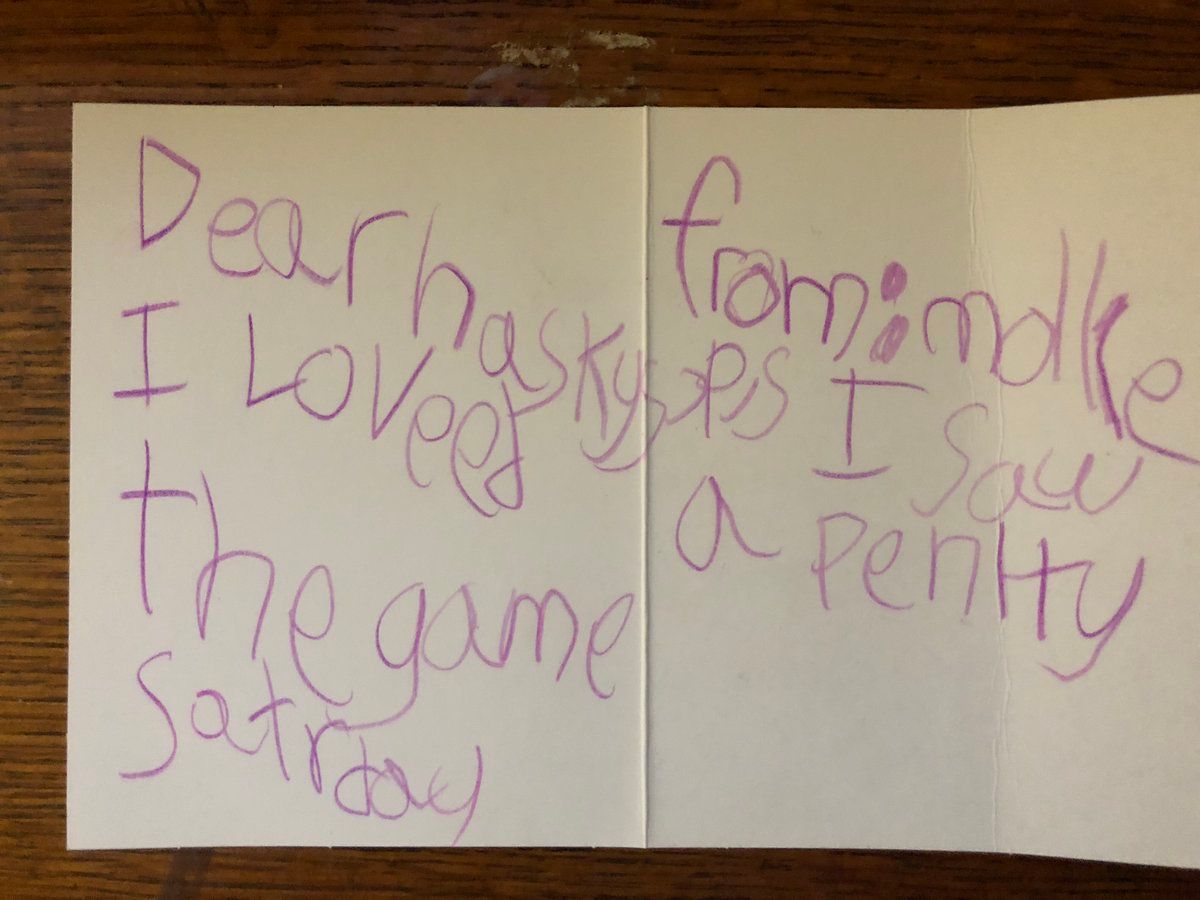 Dear haskys
I Loveed
the game
Satrday
from:
ps I saw
a penlty